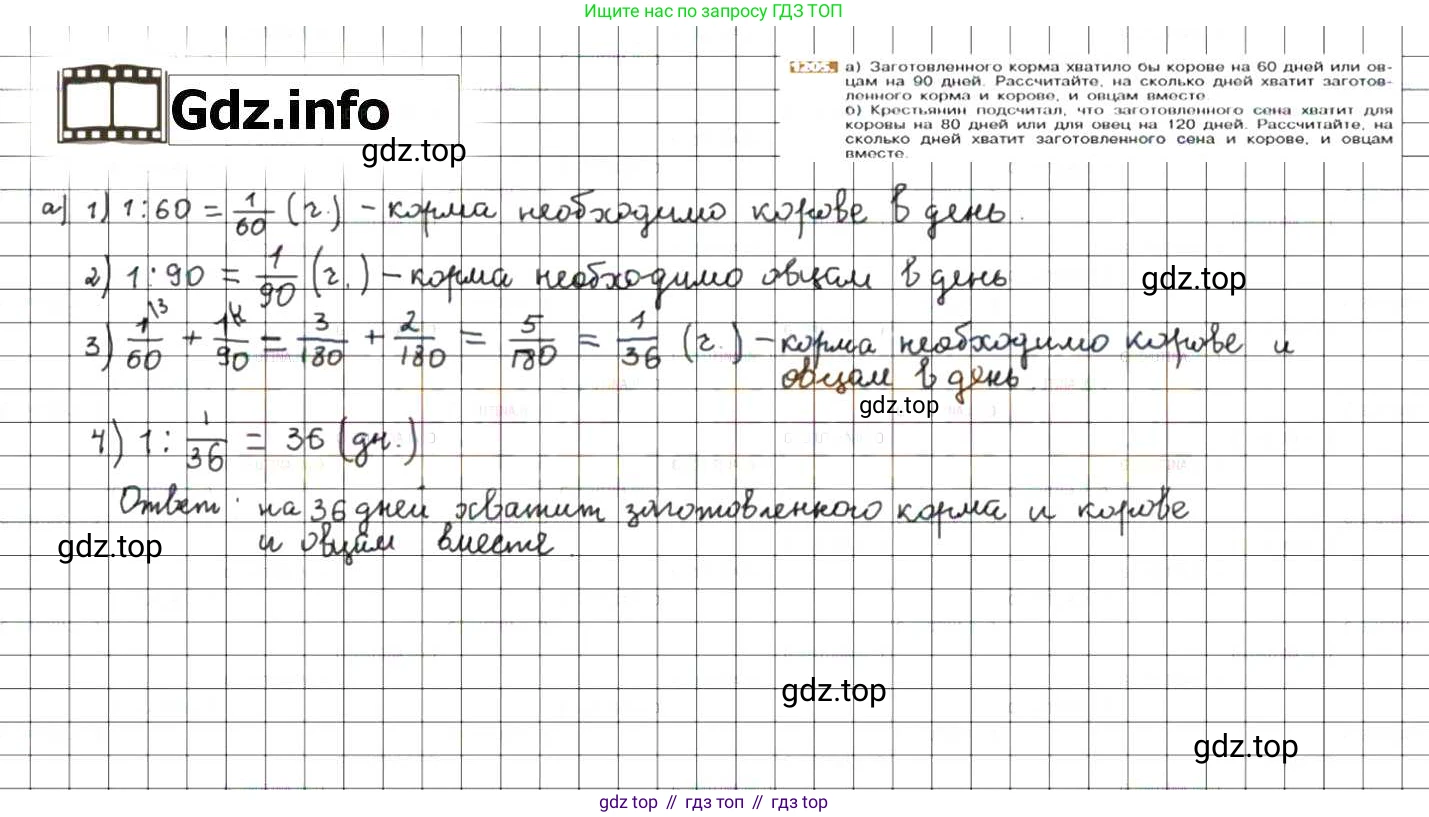 Ищите нас по запросу ГДЗ ТОП
Gdz.info
gdz.top
1205. а) Заготовленного корма хватило бы корове на 60 дней или ов-
цам на 90 дней. Рассчитайте, на сколько дней хватит заготов-
ленного корма и корове, и овцам вместе.
б) Крестьянин подсчитал, что заготовленного сена хватит для
коровы на 80 дней или для овец на 120 дней. Рассчитайте, на
сколько дней хватит заготовленного сена и корове, и овцам
вместе.
а) 1) 1:60 = 1/60 (г.) – корма необходимо корове в день.
2) 1:90 = 1/90 (г.) – корма необходимо овцам в день
gdz.top
3) 1/60 \3 + 1/90 \2 = 3/180 + 2/180 = 5/180 = 1/36 (г.) – корма необходимо корове и
овцам в день.
gdz.top
4) 1 : 1/36 = 36 (дн.)
Ответ: на 36 дней хватит заготовленного корма и корове
и овцам вместе.
gdz.top
gdz.top
gdz.top
gdz top // гдз топ // gdz top